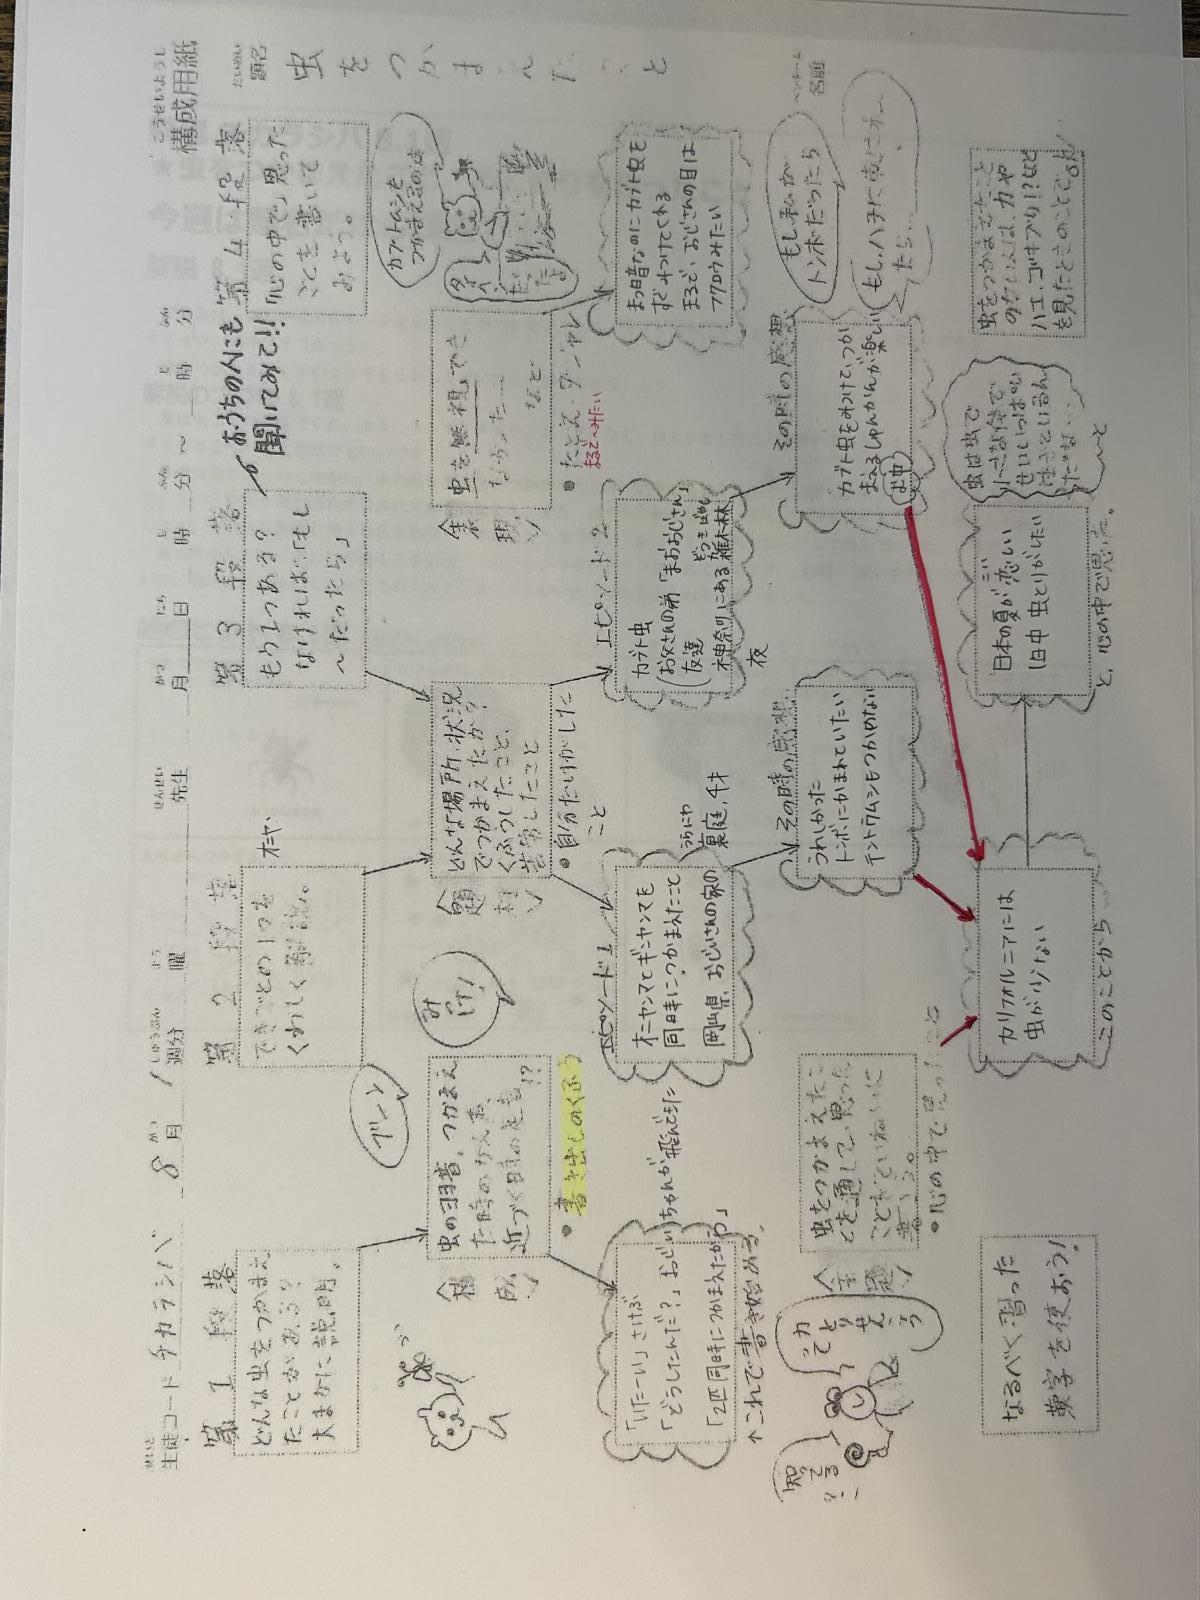 こうせいようし
構成用紙
せいと
生徒コード チカラシバ 8月 1週分 曜 先生 月 日 時 分 〜 時 分
だいめい
題名 虫をつかまえたこと
ペンネーム
名前
第1段落
どんな虫をつかまえ
たことがある?
大まかに説明。
第2段落
できごとの1つを
くわしく解説。
オニヤ、
第3段落
もう1つある?
なければ「もし
〜だったら」
おうちの人にも
聞いてみて!!
第4段落
「心の中で」思った
ことを書いて
みよう。
ブーン
虫の羽音、つかまえ
た時のなき声、
近づく時の足音
!?
〈構成〉
●書き出しのくふう
みーけ!
どんな場所、状況
でつかまえたか?
くふうしたこと、
苦労したこと
〈題材〉
●自分だけがした
こと
虫を無視、でき
なかった……
など
〈表現〉
●たとえ・ダジャレ
まるで〜みたい
カブトムシを
つかまえるのは
「いたーい」さけぶ
「どうしたんだ?」おじいちゃんが飛んできた
「2匹同時につかまえたがわ」
↑これで書き始める。
エピソード1
オニヤンマとギンヤンマを
同時につかまえたこと
岡山県、おじいさんの家の
うらにわ
裏庭、4才
エピソード2
カブト虫
お父さんの弟「まおおじさん」
友達
ぞうきばやし
神奈川にある雑木林
夜
まっ暗なのにカブト虫を
すぐみつけてくれる
まるで、おじさんの目は
フクロウみたい
その時の感想
うれしかった
トンボにかまれていたい
テントウムシもつかめない
その時の感想
カブト虫をみつけて、つか
まえるしゅんかんが楽しい
夜中
もし私が
トンボだったら
もし、ハチに東にされ
たら…、
知ってる
?
カで
とりせん
こう
虫をつかまえたこ
とを通して、思った
ことをていねいに
書こう。
〈主題〉
●心の中で思ったこと
カリフォルニアには
虫が少ない
このことから
日本の夏が恋しい
こい
1日中虫とりがしたい
と、心の中で思った。
虫は虫で
小さな体で
せいいっぱい
生きているん
だなな…
〜と
虫をつかまえたこと
のない人は、カや
ハエ、ゴキブリ!?など
を見たときのことで
OK
なるべく習った
漢字を使おう!